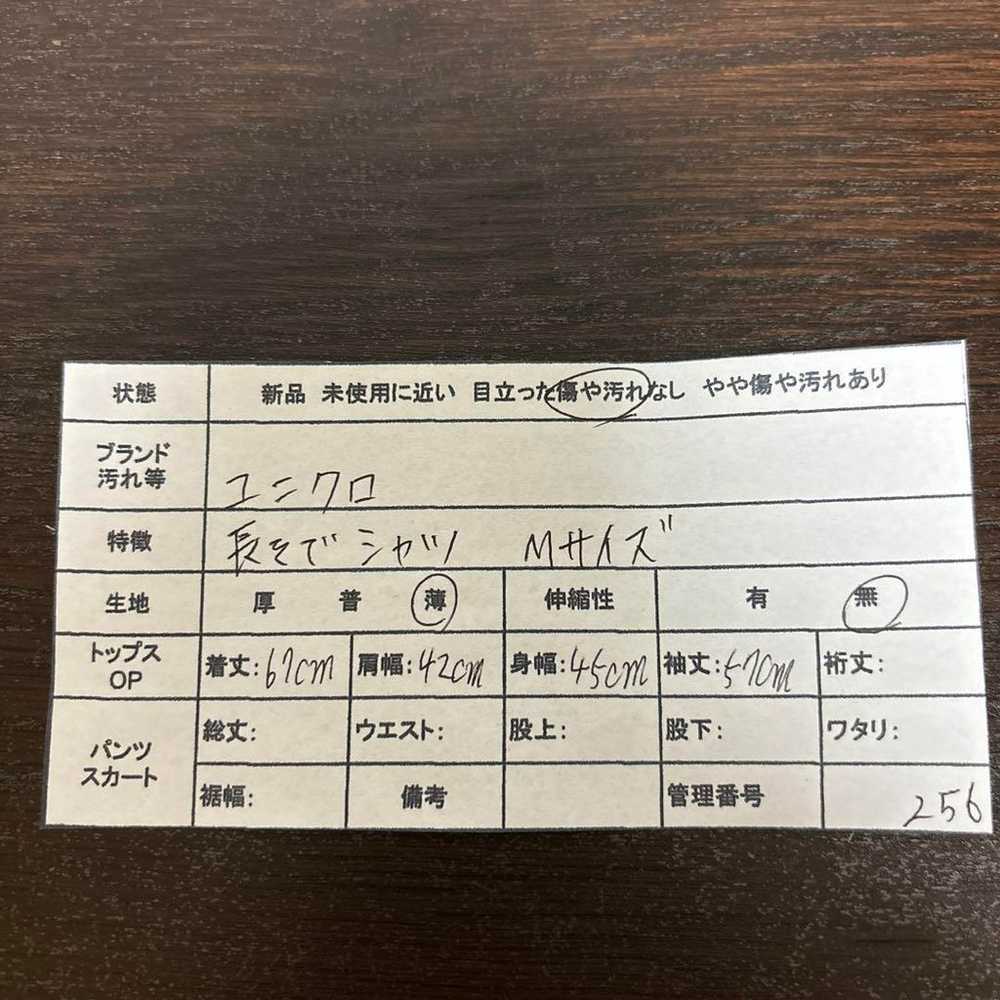 状態 新品 未使用に近い 目立った傷や汚れなし やや傷や汚れあり
ブランド
汚れ等 ユニクロ
特徴 長そでシャツ Mサイズ
生地 厚 普 薄 伸縮性 有 無
トップス
OP 着丈:67cm 肩幅:42cm 身幅:45cm 袖丈:57cm 裄丈:
パンツ
スカート 総丈: ウエスト: 股上: 股下: ワタリ:
裾幅: 備考 管理番号 256